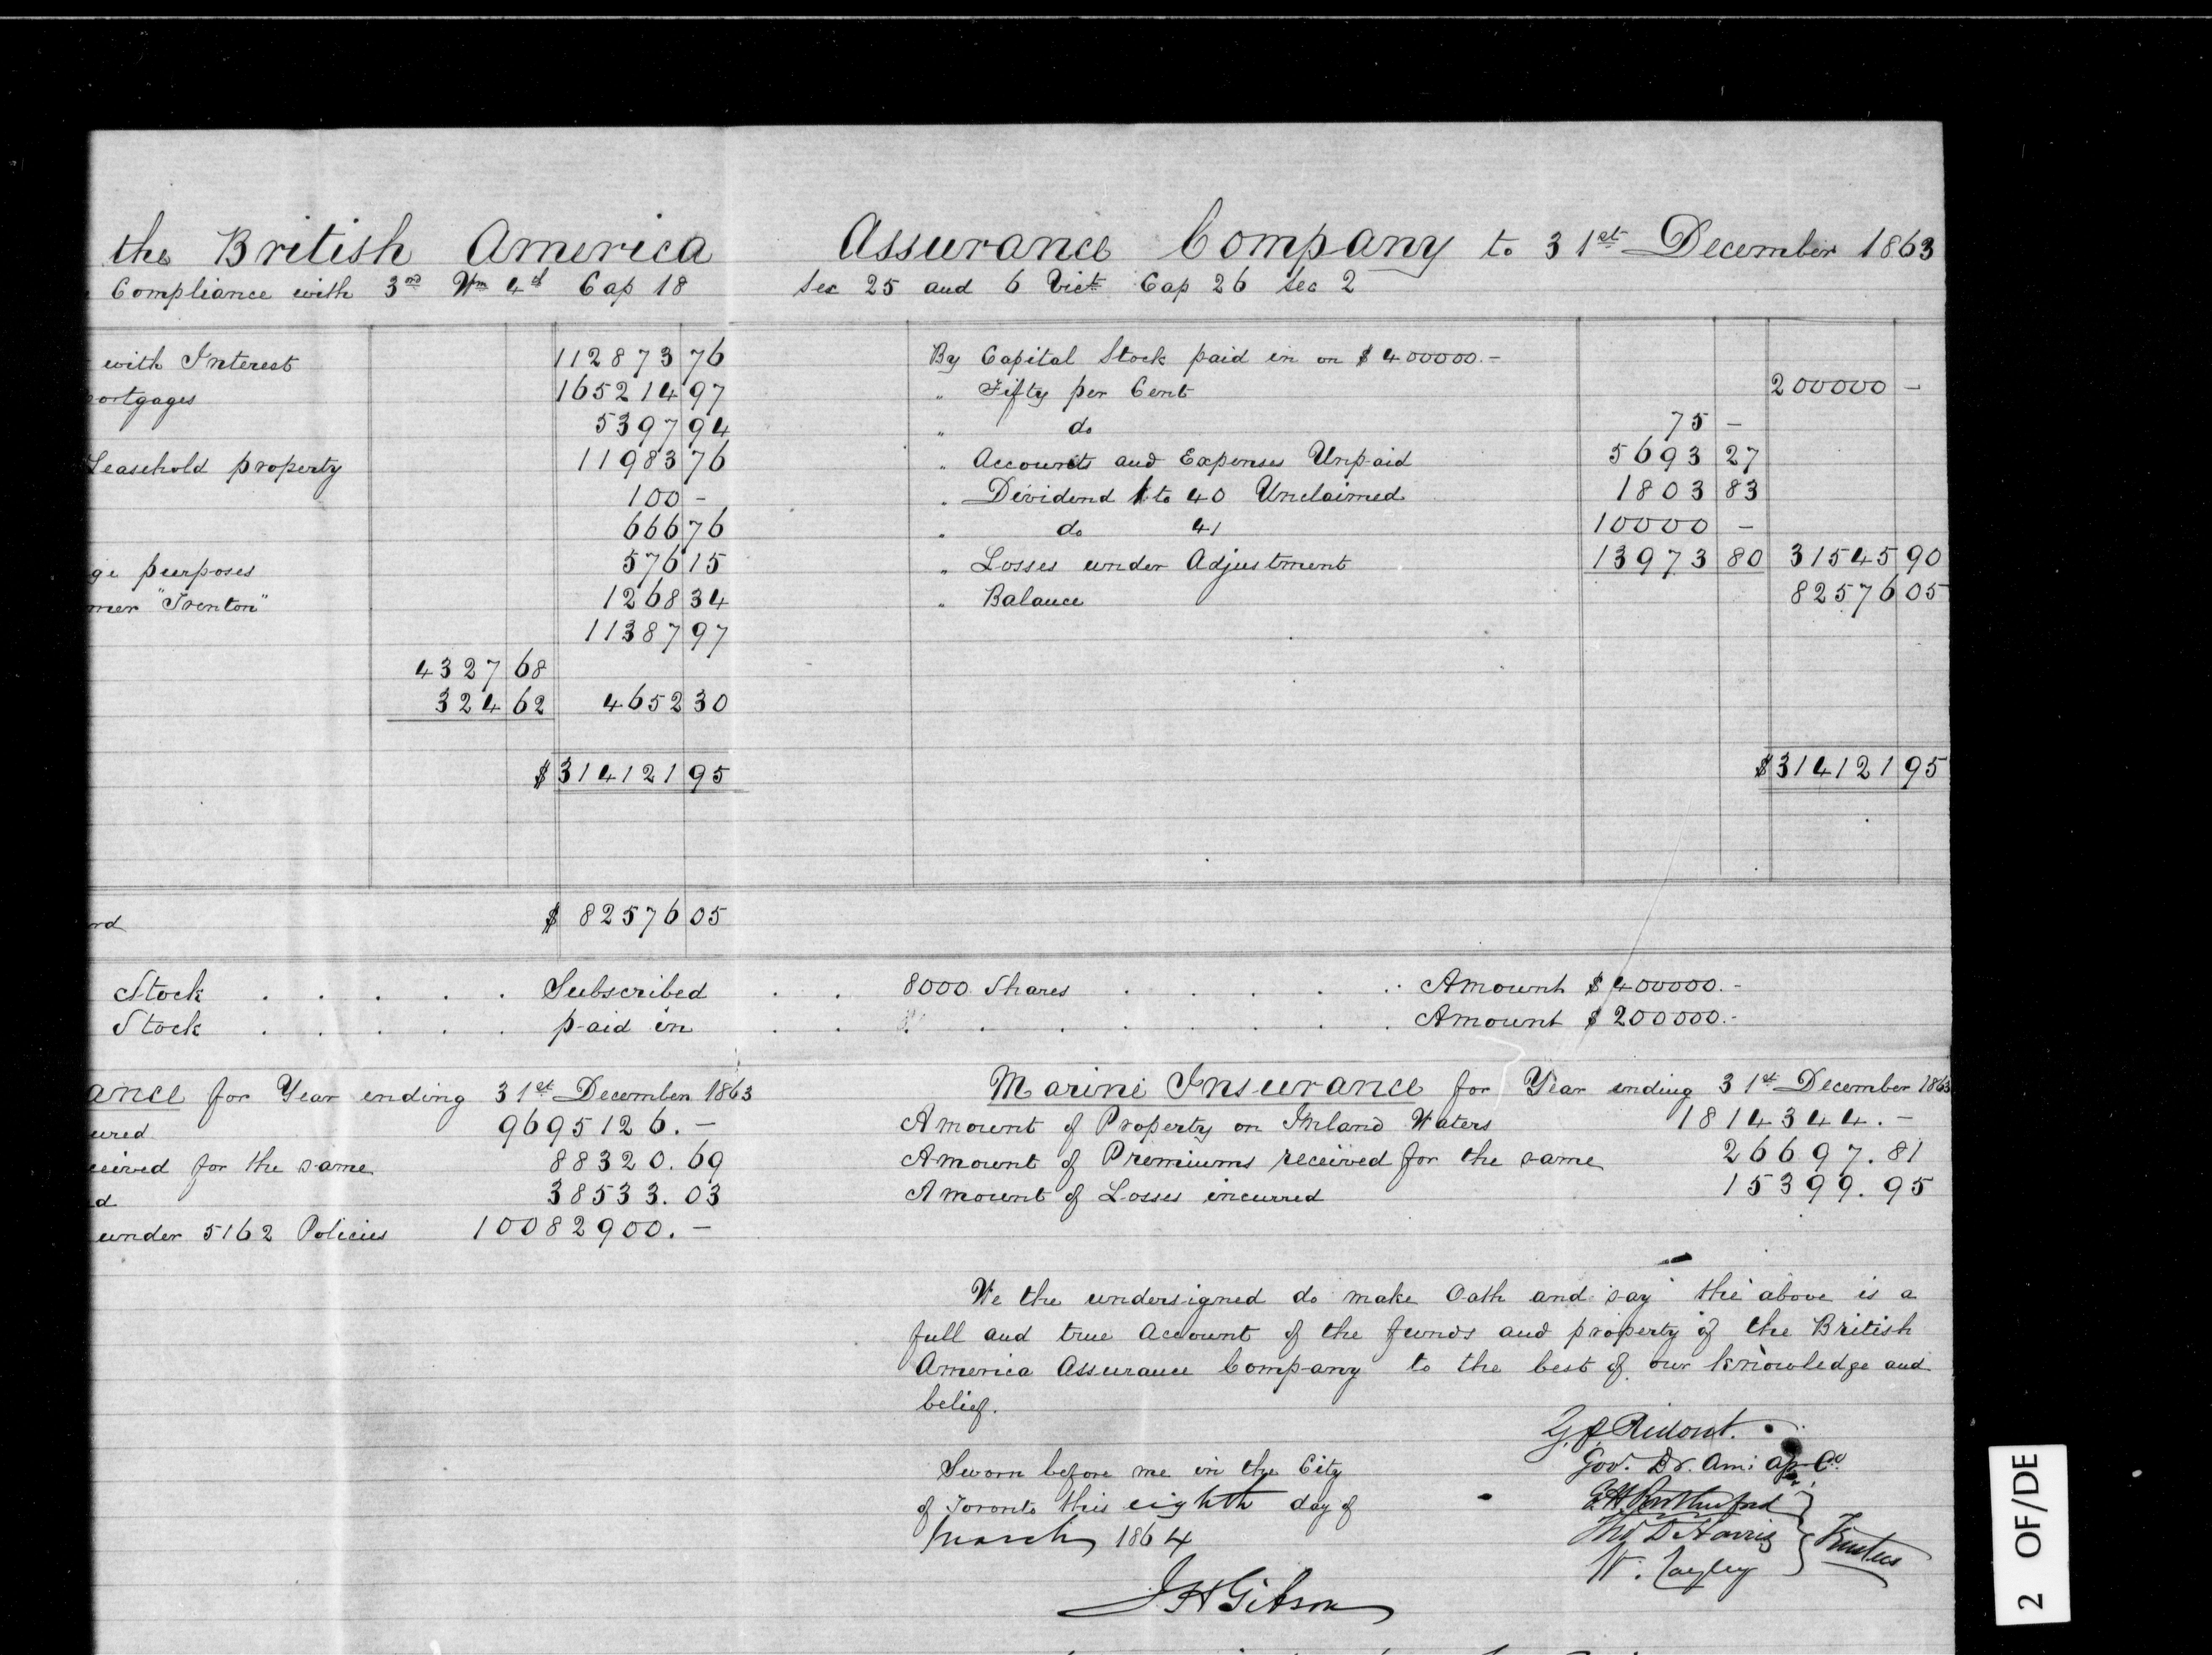 the British America Assurance Company to 31st December 1863
Compliance with 3rd Wm 4th Cap 18 Sec 25 and 6 Vict Cap 26 Sec 2
with Interest 112873 76
ortgages 165214 97
5397 94
Leasehold property 11983 76
100 -
666 76
ge purposes 576 15
mer "Trenton" 1268 34
11387 97
4327 68
324 62 4652 30
$314121 95
By Capital Stock paid in on $400000.-
" Fifty per Cent 200000 -
" do 75 -
" Accounts and Expenses Unpaid 5693 27
" Dividend 1 to 40 Unclaimed 1803 83
" do 41 10000 -
" Losses under Adjustment 13973 80 31545 90
" Balance 82576 05
$314121 95
ord $ 82576 05
Stock . . . . . Subscribed . . 8000 Shares . . . . . . Amount $400000.-
Stock . . . . . paid in . . . . . . . . . Amount $200000.-
ance for Year ending 31st December 1863
ured 9695126.-
ceived for the same 88320.69
d 38533.03
under 5162 Policies 10082900.-
Marine Insurance for Year ending 31st December 1863
Amount of Property on Inland Waters 1814344.-
Amount of Premiums received for the same 26697.81
Amount of Losses incurred 15399.95
We the undersigned do make Oath and say the above is a
full and true Account of the funds and property of the British
America Assurance Company to the best of our knowledge and
belief.
Gov. Br. Am: Ass Co
Sworn before me in the City
of Toronto this eighth day of
March 1864
G H Rutherford
Thos D Harris
W. Cayley
Trustees
J H Gibson
2 OF/DE